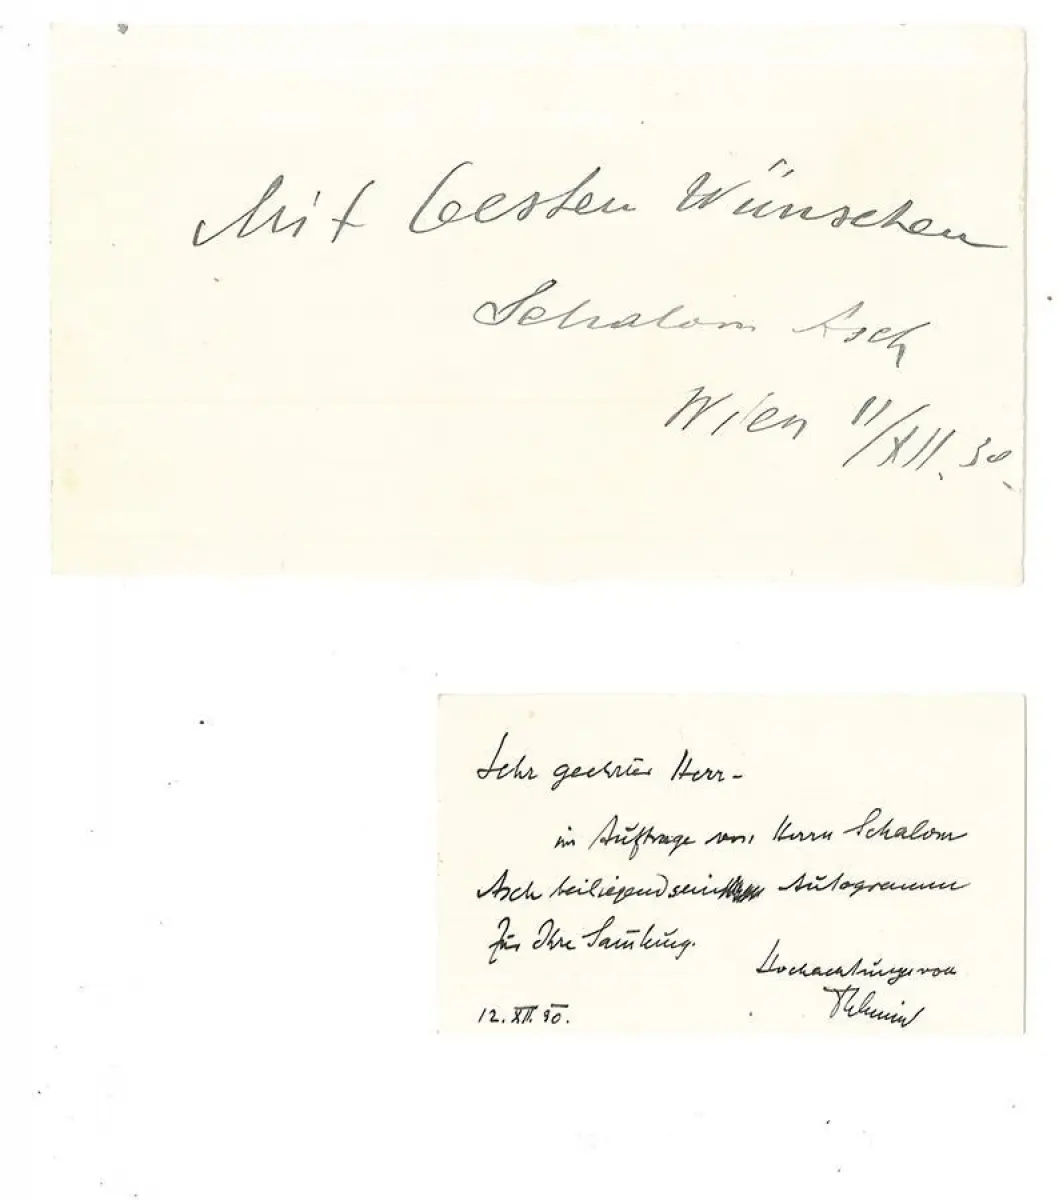 Mit besten Wünschen
Schalom Asch
Wien 11/XII. 30.
Sehr geehrter Herr-
im Auftrage von Herrn Schalom
Asch beiliegend sein Autogramm
für Ihre Samlung.
Hochachtungsvoll
12.XII.30.